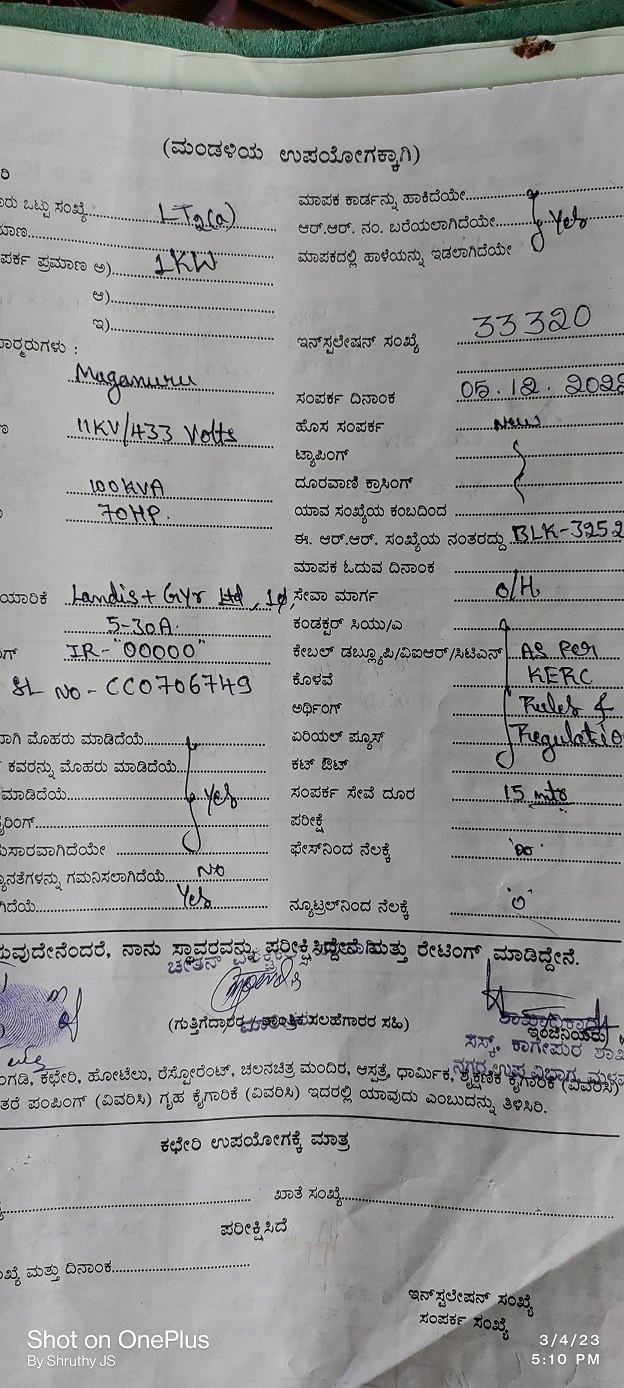 (ಮಂಡಳಿಯ ಉಪಯೋಗಕ್ಕಾಗಿ)
ರಿ
ಒಟ್ಟು ಸಂಖ್ಯೆ LT2(a)
ಮಾಪಕ ಕಾರ್ಡನ್ನು ಹಾಕಿದೆಯೇ
ಆರ್.ಆರ್. ನಂ. ಬರೆಯಲಾಗಿದೆಯೇ Yes
ಮಾಪಕದಲ್ಲಿ ಹಾಳೆಯನ್ನು ಇಡಲಾಗಿದೆಯೇ
ಪರ್ಕ ಪ್ರಮಾಣ ಅ) 1KW
ಆ)
ಇ)
ಇನ್‌ಸ್ಟಲೇಷನ್ ಸಂಖ್ಯೆ 33320
Maganuru
ಸಂಪರ್ಕ ದಿನಾಂಕ 05.12.202
11KV/433 Volts
ಹೊಸ ಸಂಪರ್ಕ New
ಟ್ಯಾಪಿಂಗ್
100KVA
ದೂರವಾಣಿ ಕ್ರಾಸಿಂಗ್
70HP.
ಯಾವ ಸಂಖ್ಯೆಯ ಕಂಬದಿಂದ
ಈ. ಆರ್.ಆರ್. ಸಂಖ್ಯೆಯ ನಂತರದ್ದು BLK-3252
ಮಾಪಕ ಓದುವ ದಿನಾಂಕ
ಯಾರಿಕೆ Landis+Gyr Ltd, 1ø,
ಸೇವಾ ಮಾರ್ಗ O/H
5-30A
ಕಂಡಕ್ಟರ್ ಸಿಯು/ಎ
IR-"00000"
ಕೇಬಲ್ ಡಬ್ಲ್ಯೂಪಿ/ವಿಐಆರ್/ಸಿಟಿಎನ್ As per
SL NO-CC0706749
ಕೊಳವೆ KERC
ಅರ್ಥಿಂಗ್ Rules &
ವಾಗಿ ಮೊಹರು ಮಾಡಿದೆಯೆ
ಏರಿಯಲ್ ಪ್ಯೂಸ್ Regulatio
ಕವರನ್ನು ಮೊಹರು ಮಾಡಿದೆಯೆ
ಕಟ್ ಔಟ್
ಮಾಡಿದೆಯೆ Yes
ಸಂಪರ್ಕ ಸೇವೆ ದೂರ 15 mts
ರಿಂಗ್
ಪರೀಕ್ಷೆ
ಸಾರವಾಗಿದೆಯೇ
ಫೇಸ್‌ನಿಂದ ನೆಲಕ್ಕೆ
ನತೆಗಳನ್ನು ಗಮನಿಸಲಾಗಿದೆಯೆ No
ಗಿದೆಯೆ Yes
ನ್ಯೂಟ್ರಲ್‌ನಿಂದ ನೆಲಕ್ಕೆ
ುವುದೇನೆಂದರೆ, ನಾನು ಸ್ಥಾವರವನ್ನು ಪರೀಕ್ಷಿಸಿದ್ದೇನೆ ಮತ್ತು ರೇಟಿಂಗ್ ಮಾಡಿದ್ದೇನೆ.
(ಗುತ್ತಿಗೆದಾರರ / ತಾಂತ್ರಿಕ ಸಲಹೆಗಾರರ ಸಹಿ)
ಇಂಜಿನಿಯರು
ಂಗಡಿ, ಕಛೇರಿ, ಹೋಟೆಲು, ರೆಸ್ಟೋರೆಂಟ್, ಚಲನಚಿತ್ರ ಮಂದಿರ, ಆಸ್ಪತ್ರೆ, ಧಾರ್ಮಿಕ, ಶೈಕ್ಷಣಿಕ ಕೈಗಾರಿಕೆ (ವಿವರಿಸಿ)
ತರೆ ಪಂಪಿಂಗ್ (ವಿವರಿಸಿ) ಗೃಹ ಕೈಗಾರಿಕೆ (ವಿವರಿಸಿ) ಇದರಲ್ಲಿ ಯಾವುದು ಎಂಬುದನ್ನು ತಿಳಿಸಿರಿ.
ಕಛೇರಿ ಉಪಯೋಗಕ್ಕೆ ಮಾತ್ರ
ಖಾತೆ ಸಂಖ್ಯೆ
ಪರೀಕ್ಷಿಸಿದೆ
ಖ್ಯೆ ಮತ್ತು ದಿನಾಂಕ
ಇನ್‌ಸ್ಟಲೇಷನ್ ಸಂಖ್ಯೆ
ಸಂಪರ್ಕ ಸಂಖ್ಯೆ
Shot on OnePlus
By Shruthy JS
3/4/23
5:10 PM